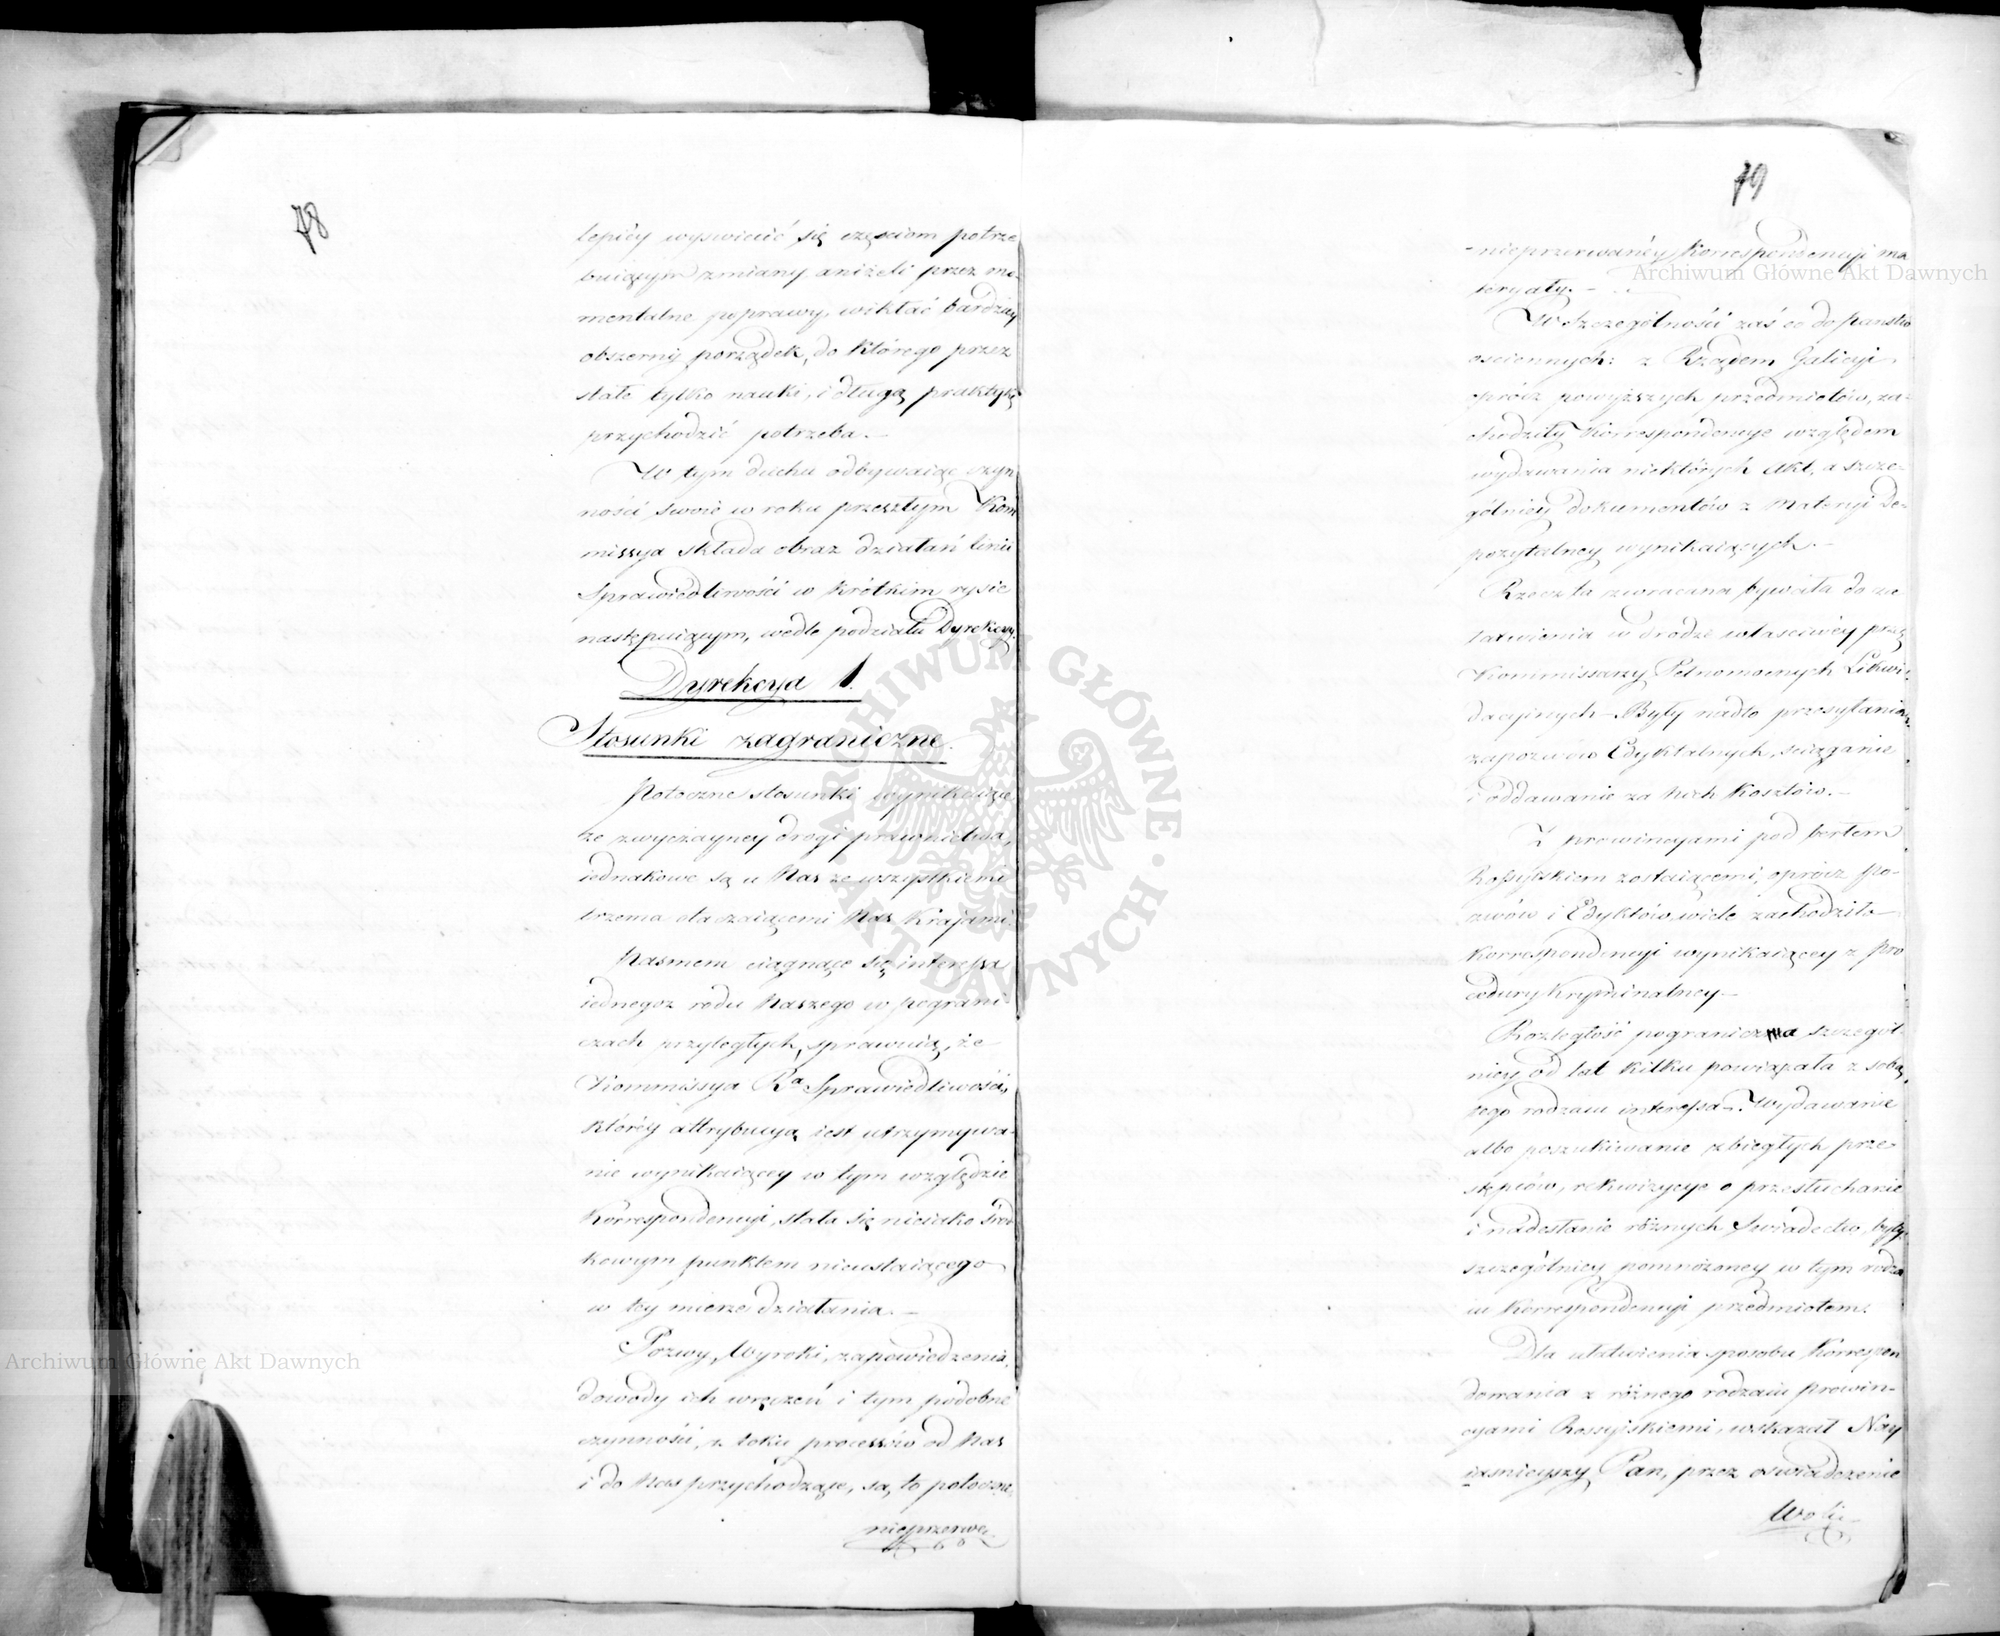 78
lepiéy wyswiecić się częsciom potrze
buiącym zmiany aniżeli przez mo-
mentalne poprawy, wikłać bardziey
obszerny porządek, do którego przez
stałe tylko nauki, i długą praktykę
przychodzić potrzeba.—
W tym duchu odbywaiąc czyn
ności swoie w roku przeszłym Kom
missya składa obraz działań linii
Sprawiedliwości w krótkim rysie
następuiącym, wedle podziału Dyrekcyi.
Dyrekcya 1.
Stosunki zagraniczne.
Potoczne stosunki wynikaiące
ze zwyczayney drogi prawnictwa,
iednakowe są u Nas ze wszystkiemi
trzema otaczaiącemi Nas Kraiami.
Nasmem ciągnące się interessa
iednegoż rodu Naszego w pograni
czach przyległych, sprawuią, że
Kommissya Ra Sprawiedliwości,
któréy attrybucyą iest utrzymywa-
nie wynikaiącey w tym względzie
Korrespondencyi, stała się nieiako środ
kowym punktem nieustaiącego
w téy mierze działania.—
Pozwy, Wyroki, zapowiedzenia,
dowody ich wręczeń i tym podobne
czynności, z toku processów od Nas
i do Nas przychodzące, są to potoczne
nieprzerwa
79
-nieprzerwanéy Korrespondencyi ma
teryały.—
W szczególności zaś co do państw
osciennych: z Rządem Galicyi
oprócz powyższych przedmiotów, za-
chodziły Korrespondencye względem
wydawania niektórych Akt, a szcze-
gólniey dokumentów z Materyi De-
pozytalney wynikaiących.—
Rzecz ta zwracana bywała do za
łatwienia w drodze właściwéy przez
Kommissarzy Pełnomocnych Likwi-
dacyinych—Były nadto przesyłania
zapozwów Edyktalnych, sciąganie
i oddawanie za nich Kosztów.—
Z prowincyami pod berłem
Rossyiskiem zostaiącemi, oprócz Po-
zwów i Edyktów, wiele zachodziło
Korrespondencyi wynikaiącey z pro
cedury kryminalney—
Rozległość pograniczna szczegól-
niey od lat kilku powiązała z sobą
tego rodzaiu interessa.—Wydawanie
albo poszukiwanie zbiegłych prze-
stępców, rekwizycye o przesłuchanie
i nadesłanie różnych Swiadectw, były
szczególniey pomnożoney w tym rodza
iu Korrespondencyi przedmiotem.
Dla ułatwienia sposobu Korrespon
dowania z różnego rodzaiu prowin-
cyami Rossyiskiemi, wskazał Nay
iaśnieyszy Pan, przez oswiadczenie
Woli
Archiwum Główne Akt Dawnych
Archiwum Główne Akt Dawnych
ARCHIWUM GŁÓWNE · AKT DAWNYCH ·